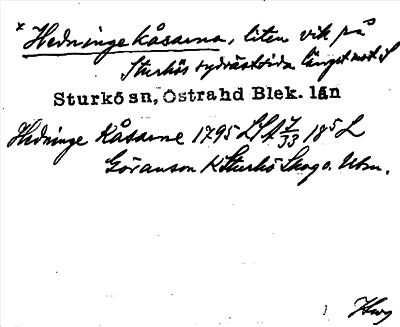 * Hedninge kåsarna, liten vik på
Sturkös sydvästsida längst mot S
Sturkö sn, Östra hd Blek. län
Hedninge Kåsarne 1795 LSA 7/33 18⁵ L
Göranson K Sturkö Skog o. Utm.
Hwg